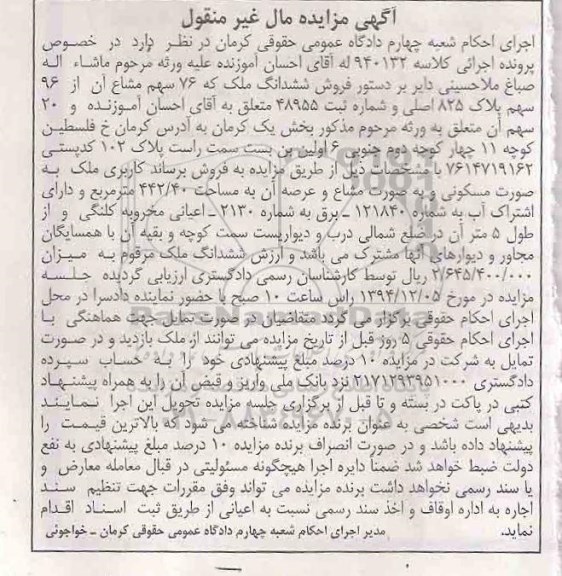 آگهی مزایده مال غیر منقول
اجرای احکام شعبه چهارم دادگاه عمومی حقوقی کرمان در نظر دارد در خصوص
پرونده اجرائی کلاسه ۹۴۰۱۳۲ له آقای احسان آموزنده علیه ورثه مرحوم ماشاء اله
صباغ ملاحسینی دایر بر دستور فروش ششدانگ ملک که ۷۶ سهم مشاع آن از ۹۶
سهم پلاک ۸۲۵ اصلی و شماره ثبت ۴۸۹۵۵ متعلق به آقای احسان آموزنده و ۲۰
سهم آن متعلق به ورثه مرحوم مذکور بخش یک کرمان به آدرس کرمان خ فلسطین
کوچه ۱۱ چهار کوچه دوم جنوبی ۶ اولین بن بست سمت راست پلاک ۱۰۲ کدپستی
۷۶۱۴۷۱۹۱۶۲ با مشخصات ذیل از طریق مزایده به فروش برساند کاربری ملک به
صورت مسکونی و به صورت مشاع و عرصه آن به مساحت ۴۴۲/۴۰ مترمربع و دارای
اشتراک آب به شماره ۱۲۱۸۴۰ ـ برق به شماره ۲۱۳۰ ـ اعیانی مخروبه کلنگی و از
طول ۵ متر آن در ضلع شمالی درب و دیواریست سمت کوچه و بقیه آن با همسایگان
مجاور و دیوارهای آنها مشترک می باشد و ارزش ششدانگ ملک مرقوم به میزان
۲/۶۴۵/۴۰۰/۰۰۰ ریال توسط کارشناسان رسمی دادگستری ارزیابی گردیده جلسه
مزایده در مورخ ۱۳۹۴/۱۲/۰۵ راس ساعت ۱۰ صبح با حضور نماینده دادسرا در محل
اجرای احکام حقوقی برگزار می گردد متقاضیان در صورت تمایل جهت هماهنگی با
اجرای احکام حقوقی ۵ روز قبل از تاریخ مزایده می توانند از ملک بازدید و در صورت
تمایل به شرکت در مزایده ۱۰ درصد مبلغ پیشنهادی خود را به حساب سپرده
دادگستری ۲۱۷۱۲۹۳۹۵۱۰۰۰ نزد بانک ملی واریز و قبض آن را به همراه پیشنهاد
کتبی در پاکت در بسته و تا قبل از برگزاری جلسه مزایده تحویل این اجرا نمایند
بدیهی است شخصی به عنوان برنده مزایده شناخته می شود که بالاترین قیمت را
پیشنهاد داده باشد و در صورت انصراف برنده مزایده ۱۰ درصد مبلغ پیشنهادی به نفع
دولت ضبط خواهد شد ضمناً دایره اجرا هیچگونه مسئولیتی در قبال معامله معارض و
یا سند رسمی نخواهد داشت برنده مزایده می تواند وفق مقررات جهت تنظیم سند
اجاره به اداره اوقاف و اخذ سند رسمی نسبت به اعیانی از طریق ثبت اسناد اقدام
نماید.
مدیر اجرای احکام شعبه چهارم دادگاه عمومی حقوقی کرمان ـ خواجوئی